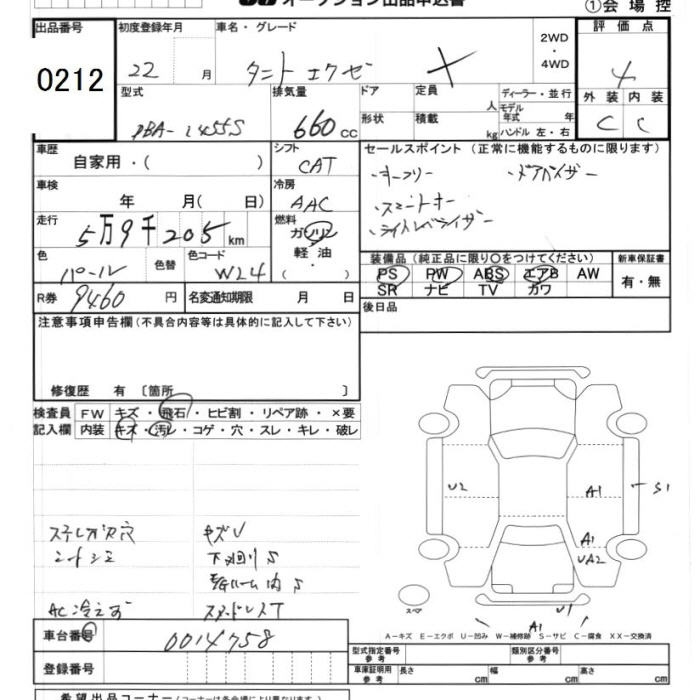 オークション出品申込書 ①会場控
出品番号 初度登録年月 車名・グレード 2WD・4WD 評価点
0212 22 月 タント エクゼ
型式 排気量 ドア 定員 人 ディーラー・並行 外装 内装
660 cc 形状 積載 kg モデル年式 年 ハンドル 左・右 C C
車歴 シフト セールスポイント (正常に機能するものに限ります)
自家用・( ) CAT
・キーフリー ・ドアバイザー
車検 冷房
年 月( 日) AAC
・ライトレベライザー
走行 燃料
5万9千205km ガソリン 軽油・( )
色 色替 色コード 装備品 (純正品に限り○をつけてください) 新車保証書
パール W24 PS PW ABS エアB AW 有・無
SR ナビ TV カワ
R券 9460円 名変通知期限 月 日 後日品
注意事項申告欄(不具合内容等は具体的に記入して下さい)
修復歴 有 〔箇所 〕
検査員 FW キズ・飛石・ヒビ割・リペア跡・×要
記入欄 内装 キズ・汚レ・コゲ・穴・スレ・キレ・破レ
U2 A1 S1
A1
UA2
キズU
シートシミ 下廻りS
AC冷えず スタッドレスT
スペア U1
A1
車台番号 0014758
A-キズ E-エクボ U-凹み W-補修跡 S-サビ C-腐食 XX-交換済
型式指定番号 参考 類別区分番号 参考
登録番号 車庫証明用 参考 長さ cm 幅 cm 高さ cm
希望出品コーナー(コーナーは各会場により異なります)